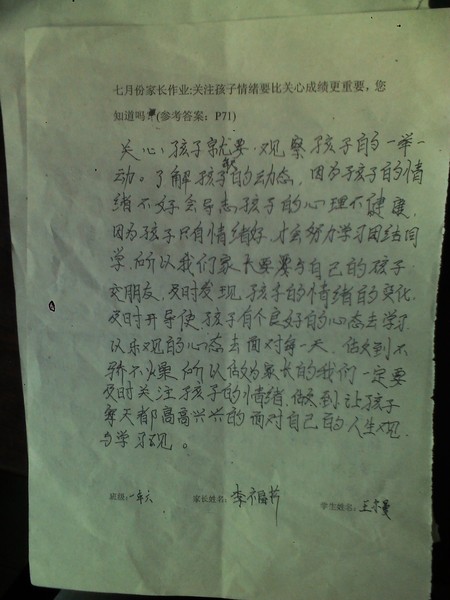 七月份家长作业:关注孩子情绪要比关心成绩更重要，您
知道吗？(参考答案：P71)
关心孩子就要观察孩子的一举一
动。了解孩子的动态，因为孩子的情
绪不好会导志孩子的心理不健康，
因为孩子只有情绪好，才会努力学习团结同
学，所以我们家长要要与自己的孩子
交朋友，及时发现孩子的情绪的变化
及时开导使孩子有个良好的心态去学习
以乐观的心态去面对每一天，做到不
骄不燥，所以做为家长的我们一定要
及时关注孩子的情绪，做到让孩子
每天都高高兴兴的面对自己的人生观
与学习观。
班级：一年六 家长姓名：李 学生姓名：王曼